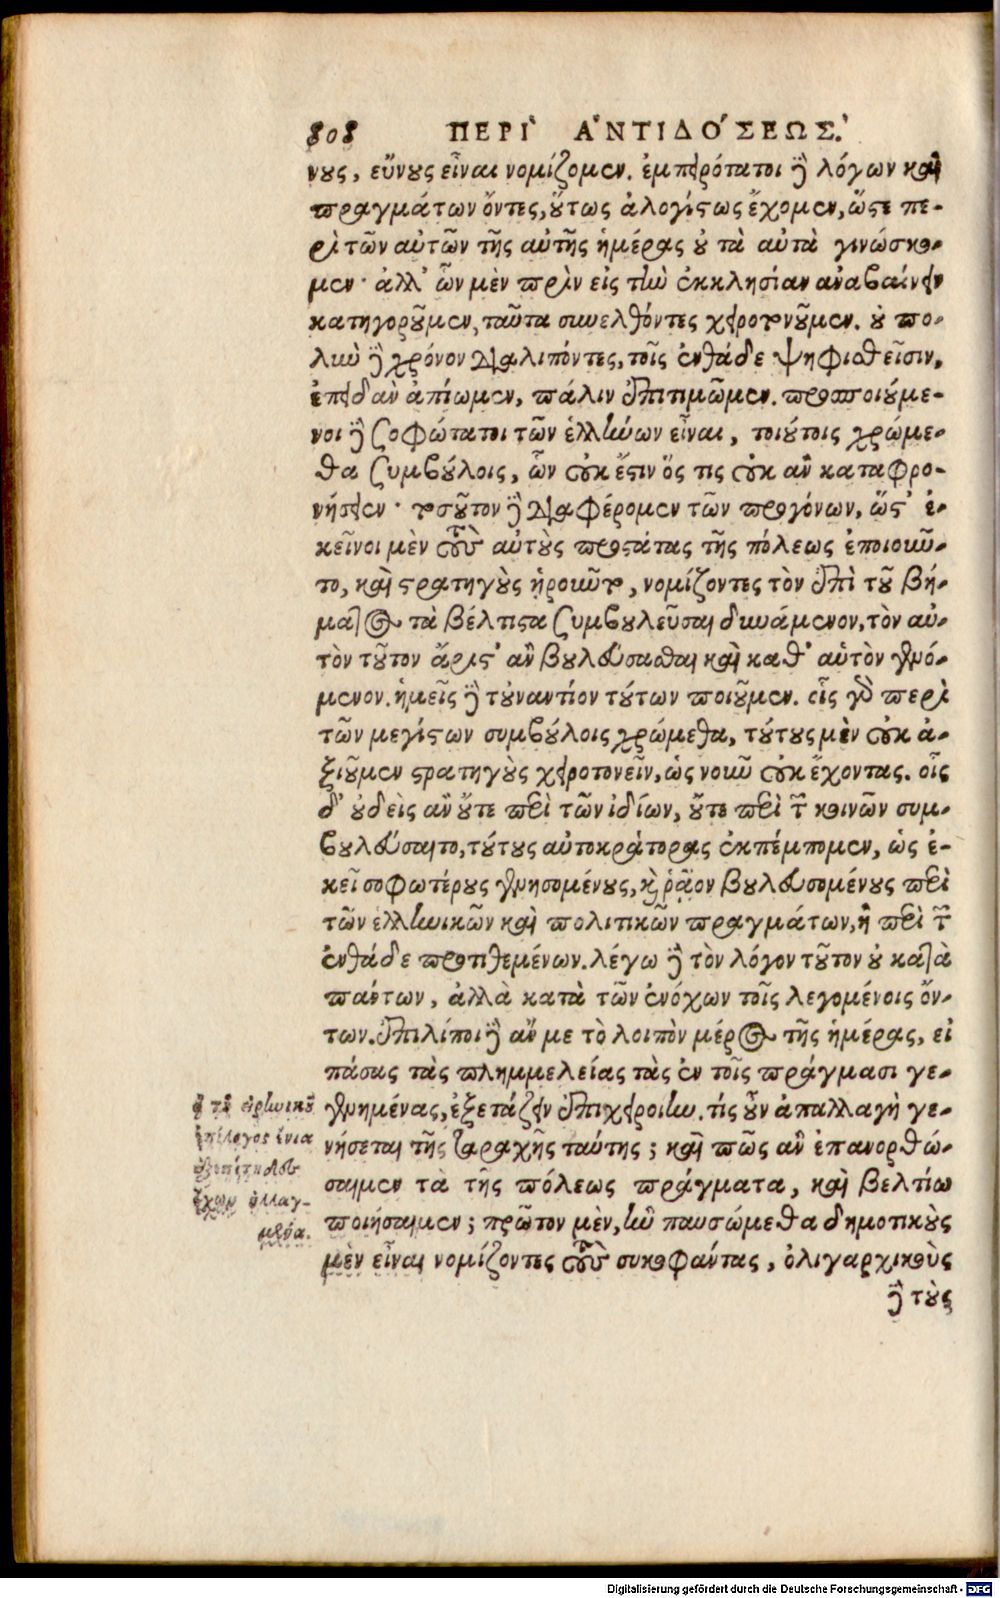 808 ΠΕΡΙ` Α᾿ΝΤΙΔΟ´ΣΕΩΣ.
νους, εὔνους εἶναι νομίζομεν. ἐμπειρότατοι δὲ λόγων καὶ
πραγμάτων ὄντες, οὕτως ἀλογίστως ἔχομεν, ὥστε πε-
ρὶ τῶν αὐτῶν τῆς αὐτῆς ἡμέρας οὐ τὰ αὐτὰ γινώσκο-
μεν· ἀλλ' ὧν μὲν πρὶν εἰς τὴν ἐκκλησίαν ἀναβαίνειν
κατηγοροῦμεν, ταῦτα συνελθόντες χειροτονοῦμεν. οὐ πο-
λὺν δὲ χρόνον διαλιπόντες, τοῖς ἐνθάδε ψηφισθεῖσιν,
ἐπειδὰν ἀπίωμεν, πάλιν ἐπιτιμῶμεν. προσποιούμε-
νοι δὲ σοφώτατοι τῶν ἑλλήνων εἶναι, τοιούτοις χρώμε-
θα συμβούλοις, ὧν οὐκ ἔστιν ὅς τις οὐκ ἂν καταφρο-
νήσειεν· τοσοῦτον δὲ διαφέρομεν τῶν προγόνων, ὥστ' ἐ-
κεῖνοι μὲν τοὺς αὐτοὺς προστάτας τῆς πόλεως ἐποιοῦν-
το, καὶ στρατηγοὺς ᾑροῦντο, νομίζοντες τὸν ἐπὶ τοῦ βή-
ματος τὰ βέλτιστα συμβουλεῦσαι δυνάμενον, τὸν αὐ-
τὸν τοῦτον ἄριστ' ἂν βουλεύσασθαι καὶ καθ' αὑτὸν γενό-
μενον. ἡμεῖς δὲ τοὐναντίον τούτων ποιοῦμεν. οἷς γὰρ περὶ
τῶν μεγίστων συμβούλοις χρώμεθα, τούτους μὲν οὐκ ἀ-
ξιοῦμεν στρατηγοὺς χειροτονεῖν, ὡς νοῦν οὐκ ἔχοντας. οἷς
δ' οὐδεὶς ἂν οὔτε περὶ τῶν ἰδίων, οὔτε περὶ τῶν κοινῶν συμ-
βουλεύσαιτο, τούτους αὐτοκράτορας ἐκπέμπομεν, ὡς ἐ-
κεῖ σοφωτέρους γενησομένους, καὶ ῥᾷον βουλευσομένους περὶ
τῶν ἑλληνικῶν καὶ πολιτικῶν πραγμάτων, ἢ περὶ τῶν
ἐνθάδε προτιθεμένων. λέγω δὲ τὸν λόγον τοῦτον οὐ κατὰ
πάντων, ἀλλὰ κατὰ τῶν ἐνόχων τοῖς λεγομένοις ὄν-
των. ἐπιλίποι δὲ ἄν με τὸ λοιπὸν μέρος τῆς ἡμέρας, εἰ
πάσας τὰς πλημμελείας τὰς ἐν τοῖς πράγμασι γε-
γενημένας, ἐξετάζειν ἐπιχειροίην. τίς οὖν ἀπαλλαγὴ γε-
νήσεται τῆς ταραχῆς ταύτης; καὶ πῶς ἂν ἐπανορθώ-
σαιμεν τὰ τῆς πόλεως πράγματα, καὶ βελτίω
ποιήσαιμεν; πρῶτον μὲν, ἢν παυσώμεθα δημοτικοὺς
μὲν εἶναι νομίζοντες τοὺς συκοφάντας, ὀλιγαρχικοὺς
δὲ τοὺς
ὁ τοῦ εἰρηνικοῦ
ἐπίλογος ἔνια
ἔχων
Digitalisierung gefördert durch die Deutsche Forschungsgemeinschaft - DFG